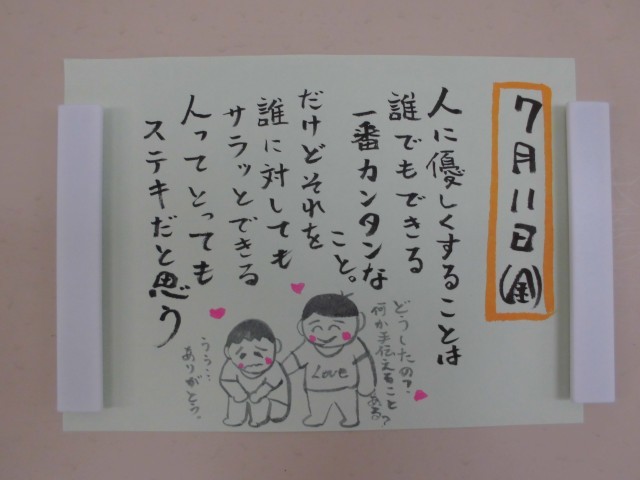 7月11日(金)
人に優しくすることは
誰でもできる
一番カンタンな
こと。
だけどそれを
誰に対しても
サラッとできる
人ってとっても
ステキだと思う
どうしたの？
何か手伝えること
ある？
Love
うぅ…
ありがとう。